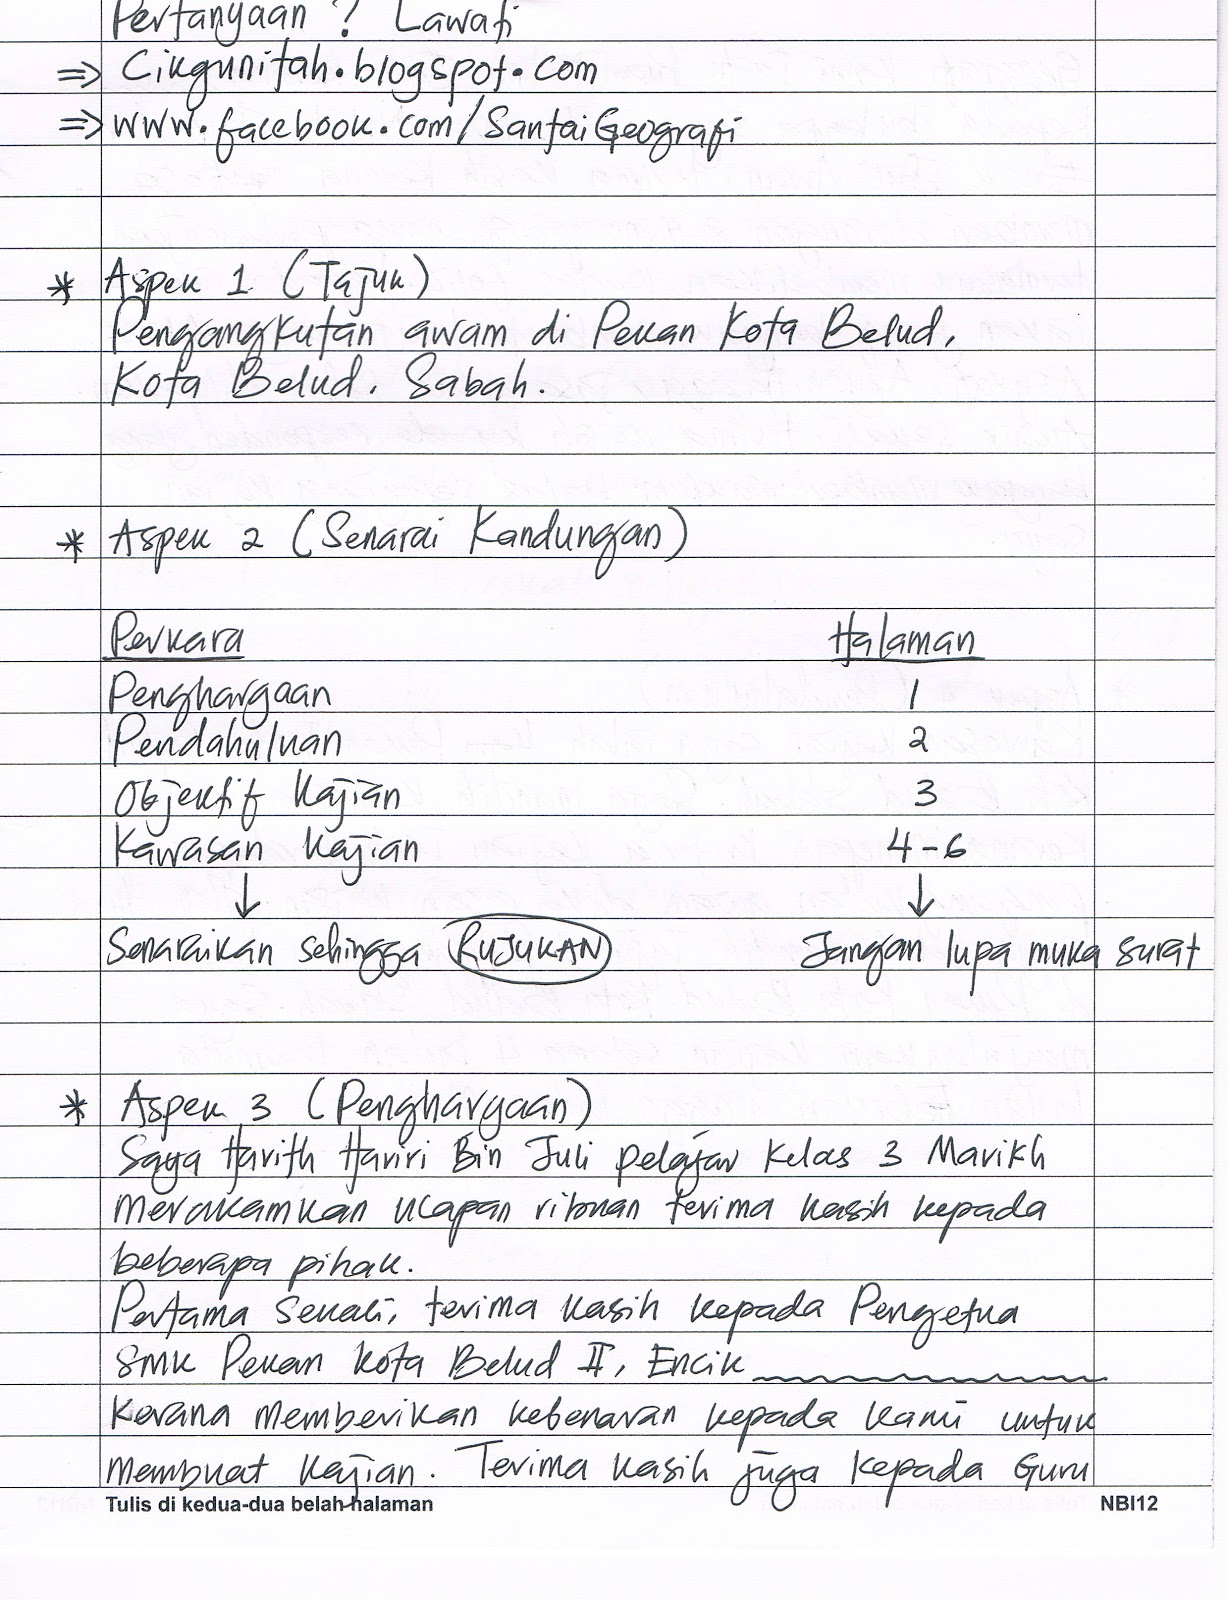 Pertanyaan? Lawati
⇒ Cikgunitah.blogspot.com
⇒ www.facebook.com/SantaiGeografi
* Aspek 1 (Tajuk)
Pengangkutan awam di Pekan Kota Belud,
Kota Belud, Sabah.
* Aspek 2 (Senarai Kandungan)
Perkara Halaman
Penghargaan 1
Pendahuluan 2
Objektif Kajian 3
Kawasan Kajian 4-6
↓ ↓
Senaraikan sehingga RUJUKAN Jangan lupa muka surat
* Aspek 3 (Penghargaan)
Saya Harith Hariri Bin Juli pelajar Kelas 3 Marikh
merakamkan ucapan ribuan terima kasih kepada
beberapa pihak.
Pertama sekali, terima kasih kepada Pengetua
SMK Pekan Kota Belud II, Encik
Kerana memberikan kebenaran kepada kami untuk
membuat kajian. Terima kasih juga kepada Guru
Tulis di kedua-dua belah halaman NBI12